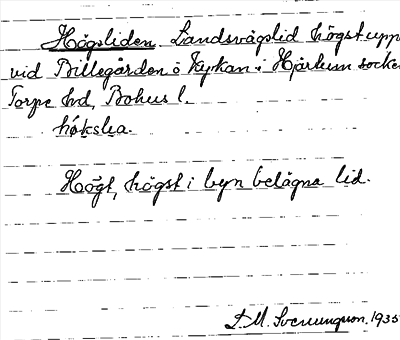 Högsliden. Landsvägslid högst upp
vid Billegården o Kyrkan i Hjärtum socke
Torpe hd, Bohus l.
Högt, högst i byn belägna lid.
S. M. Svenungsson. 1935